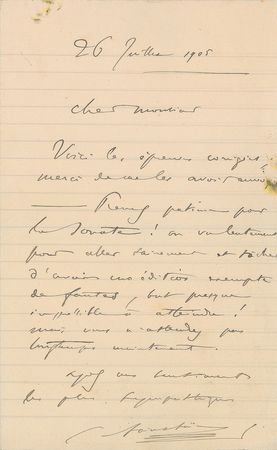 26 Juillet 1905
cher monsieur
Voici les épreuves corrigées
merci de me les avoir
— Prenez patience pour
la Sonate ! on va lentement
pour aller sûrement et tâcher
d'avoir une édition exempte
de fautes, but presque
impossible à atteindre !
mais vous n'attendrez pas
longtemps maintenant.
agréez mes sentiments
les plus sympathiques